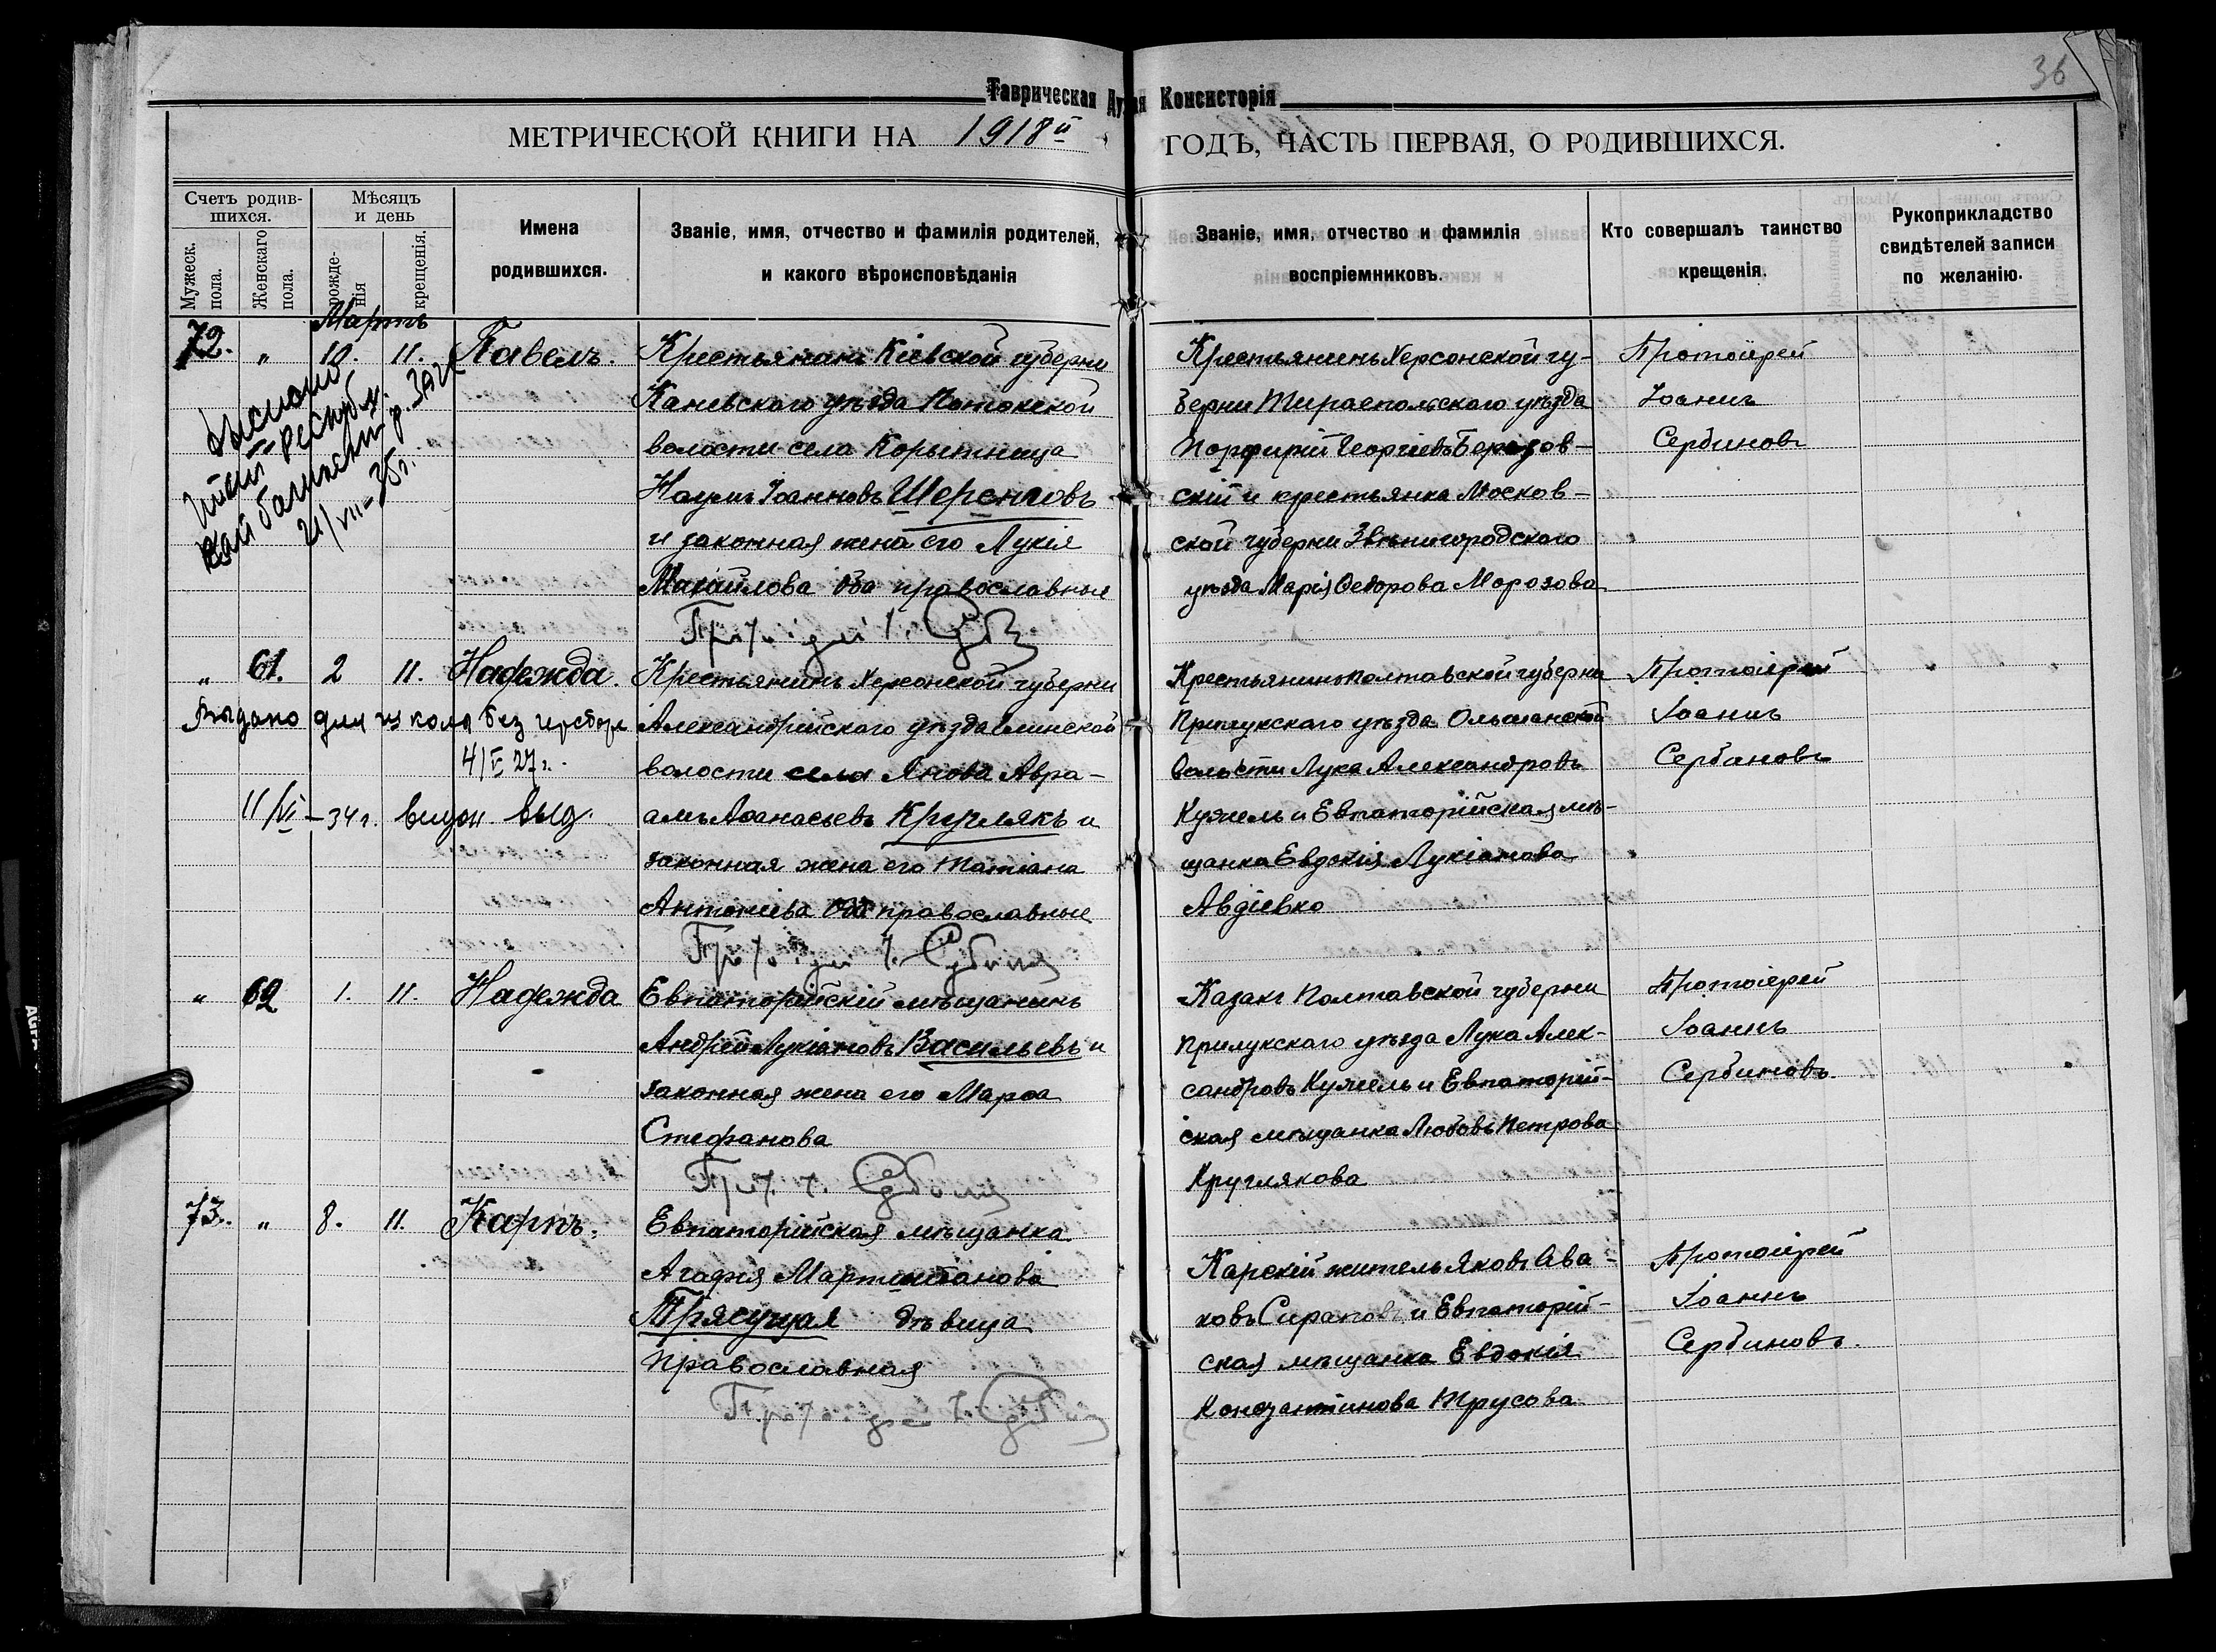 36
Таврическая Ду ая Консисторія
МЕТРИЧЕСКОЙ КНИГИ НА 1918й ГОДЪ, ЧАСТЬ ПЕРВАЯ, О РОДИВШИХСЯ.
Счетъ родив-
шихся.
Мужеск.
пола.
Женскаго
пола.
Мѣсяцъ
и день
рожде-
нія
крещенія.
Имена
родившихся.
Званіе, имя, отчество и фамилія родителей,
и какого вѣроисповѣданія
Званіе, имя, отчество и фамилія
воспріемниковъ.
Кто совершалъ таинство
крещенія.
Рукоприкладство
свидѣтелей записи
по желанію.
Мартъ
72. " 10. 11. Павелъ.
21/VII-35г.
Крестьянинъ Кіевской губерніи
Каневскаго уѣзда Потокской
волости села Корытница
Наумъ Іоанновъ Шеренговъ
и законная жена его Лукія
Михайлова Оба православные
Крестьянинъ Херсонской гу-
берніи Тираспольскаго уѣзда
Порфирій Георгіевъ Березов-
скій и крестьянка Москов-
ской губерніи Звѣнигородскаго
уѣзда Марія Ѳедорова Морозова
Протоіерей
Іоаннъ
Сербиновъ
" 61. 2 11. Надежда.
Выдано для школы без гербсбора
4/V 27г.
11/VI-34г. выд.
Крестьянинъ Херсонской губерніи
Александрійскаго уѣзда
волости села Янова Авра-
амъ Аѳанасьевъ Круглякъ и
законная жена его Татіана
Антоніева Оба православные
Крестьянинъ Полтавской губерніи
Прилукскаго уѣзда Ольшанской
волости Лука Александровъ
Кужель и Евпаторійская мѣ-
щанка Евдокія Лукіанова
Авдіевко
Протоіерей
Іоаннъ
Сербиновъ
" 62 1. 11. Надежда
Евпаторійскій мѣщанинъ
Андрей Лукіановъ Васильевъ и
законная жена его Марѳа
Стефанова
Казакъ Полтавской губерніи
Прилукскаго уѣзда Лука Алек-
сандровъ Кужель и Евпаторій-
ская мѣщанка Любовь Петрова
Круглякова
Протоіерей
Іоаннъ
Сербиновъ.
73. " 8. 11. Карпъ.
Евпаторійская мѣщанка
Агафія
Трясущая дѣвица
православная
Карскій житель Яковъ Ава-
ковъ Сираповъ и Евпаторій-
ская мѣщанка Евдокія
Константинова Трусова
Протоіерей
Іоаннъ
Сербиновъ.